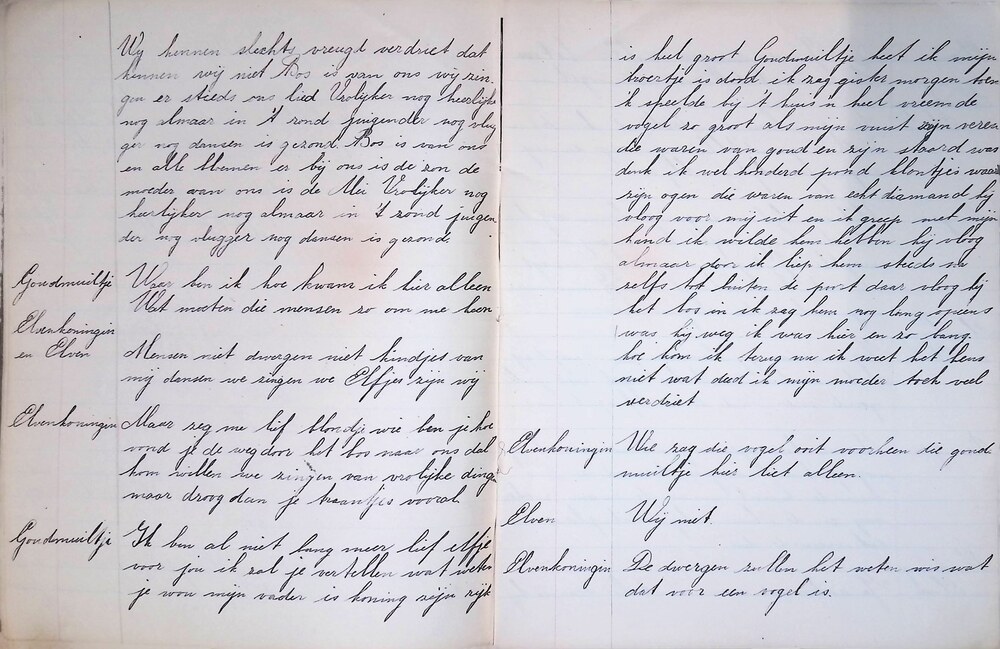 Wij kennen slechts vreugd verdriet dat
kennen wij niet Bos is van ons wij zin-
gen er steeds ons lied Vrolijker nog heerlijke
nog almaar in 't rond juigender nog vlug
ger nog dansen is gezond Bos is van ons
en alle blomen er bij ons is de zon de
moeder van ons is de Mei Vrolijker nog
heerlijker nog almaar in 't rond juigen
der nog vlugger nog dansen is gezond.
Goudmuiltje Waar ben ik hoe kwam ik hier alleen
Wat moeten die mensen zo om me heen
Elvenkoningin
en Elven Mensen niet dwergen niet kindjes van
mij dansen we zingen we Elfjes zijn wij
Elvenkoningin Maar zeg me lief blondje wie ben je hoe
vond je de weg door het bos naar ons dal
kom willen we zingen van vrolijke dingen
maar droog dan je traantjes vooral
Goudmuiltje Ik ben al niet bang meer lief elfje
voor jou ik zal je vertellen wat weten
je wou mijn vader is koning zijn rijk
is heel groot Goudmuiltje heet ik mijn
broertje is dood ik zag gister morgen toen
ik speelde bij 't huis 'n heel vreemde
vogel zo groot als mijn vuist zijn veren
die waren van goud en zijn staard was
denk ik wel honderd pond blontjes waar
zijn ogen die waren van echt diamand hij
vloog voor mij uit en ik greep met mijn
hand ik wilde hem hebben hij vloog
almaar door ik liep hem steeds na
zelfs tot buiten de poort daar vloog hij
het bos in ik zag hem nog lang opeens
was hij weg ik was hier en zo bang.
hoe kom ik terug nu ik weet het heus
niet wat deed ik mijn moeder toch veel
verdriet
Elvenkoningin Wie zag die vogel ooit voorheen die goud
muiltje hier liet alleen.
Elven Wij niet.
Elvenkoningin De dwergen zullen het weten wis wat
dat voor een vogel is.